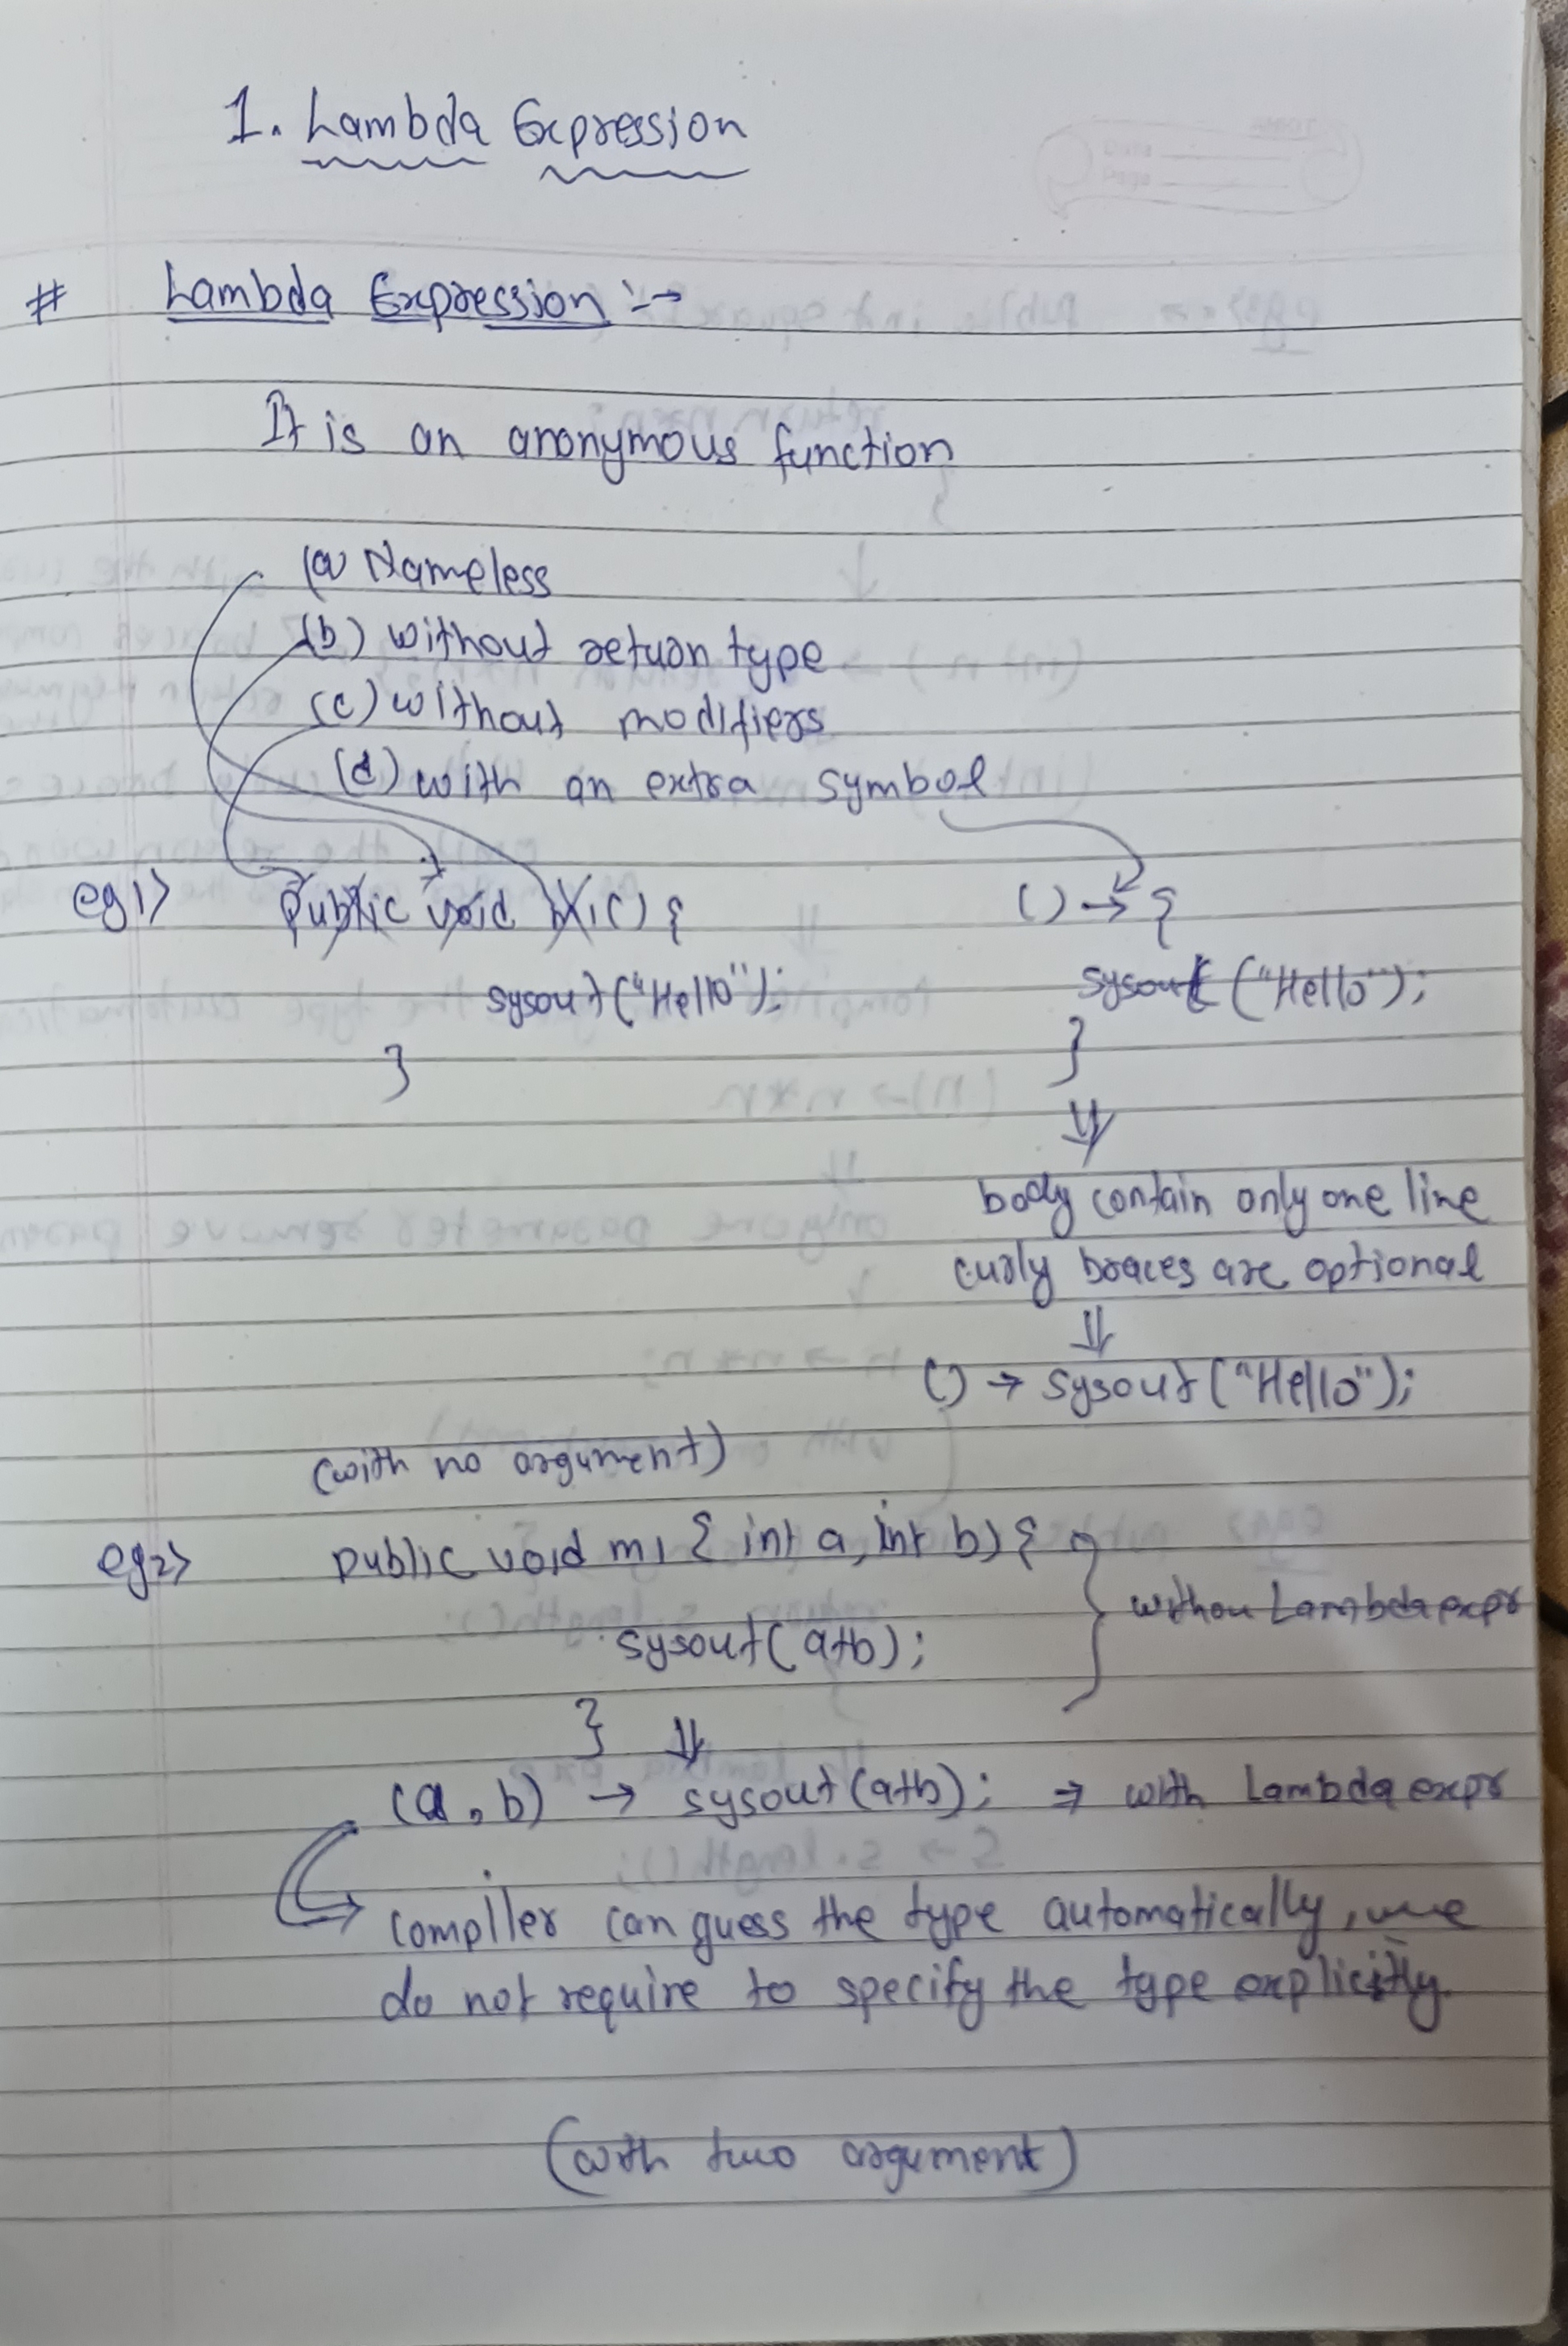 1. Lambda Expression
# Lambda Expression :→
It is an anonymous function
(a) Nameless
(b) without return type
(c) without modifiers
(d) with an extra symbol
eg1> public void m1() { () → {
sysout("Hello"); sysout("Hello");
} }
⇓
body contain only one line
curly braces are optional
⇓
() → sysout("Hello");
(with no argument)
eg2> public void m1 { int a, int b) {
withou Lambda expr
sysout(a+b);
} ⇓
(a, b) → sysout(a+b); ⇒ with Lambda expr
compiler can guess the type automatically, we
do not require to specify the type explicitly.
(with two argument)